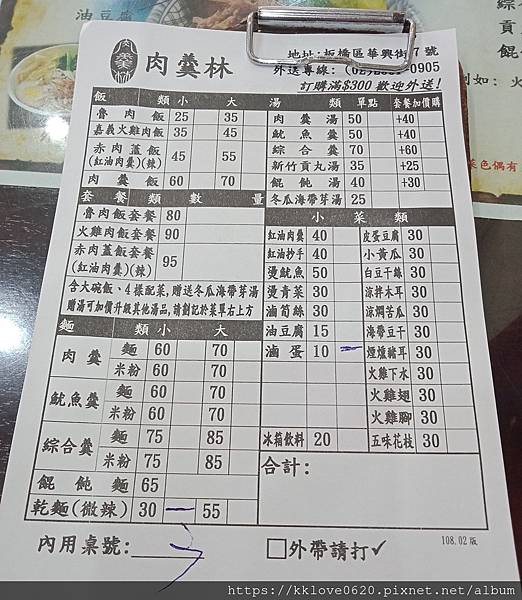 肉羹林
地址:板橋區華興街7號
外送專線: (02)
0905
訂購滿$300 歡迎外送!
飯 類 小 大
魯肉飯 25 35
嘉義火雞肉飯 35 45
赤肉蓋飯
(紅油肉羹)(辣) 45 55
肉羹飯 60 70
套餐類 數量
魯肉飯套餐 80
火雞肉飯套餐 90
赤肉蓋飯套餐
(紅油肉羹)(辣) 95
含大碗飯、4樣配菜,贈送冬瓜海帶芽湯
贈湯可加價升級其他湯品,請劃記於菜單右上方
麵 類 小 大
肉羹 麵 60 70
米粉 60 70
魷魚羹 麵 60 70
米粉 60 70
綜合羹 麵 75 85
米粉 75 85
餛飩麵 65
乾麵(微辣) 30 55
湯 類 單點 套餐加價購
肉羹湯 50 +40
魷魚羹 50 +40
綜合羹 70 +60
新竹貢丸湯 35 +25
餛飩湯 40 +30
冬瓜海帶芽湯 25
小菜類
紅油肉羹 40 皮蛋豆腐 30
紅油抄手 40 小黃瓜 30
燙魷魚 50 白豆干絲 30
燙青菜 30 涼拌木耳 30
滷筍絲 30 涼燜苦瓜 30
油豆腐 15 海帶豆干 30
滷蛋 10 煙燻豬耳 30
火雞下水 30
火雞翅 30
火雞腳 30
冰箱飲料 20 五味花枝 30
合計:
內用桌號:
□外帶請打✓
108.02版
油豆腐
綜
貢
餛
例如: 火
菜色偶有
https://kklove0620.pixnet.net/album